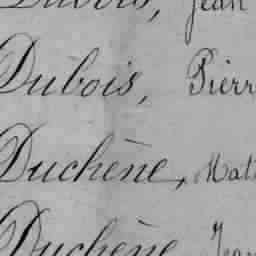 Dubois, Jean
Dubois, Pierr
Duchêne, Mat
Duchêne, Jean